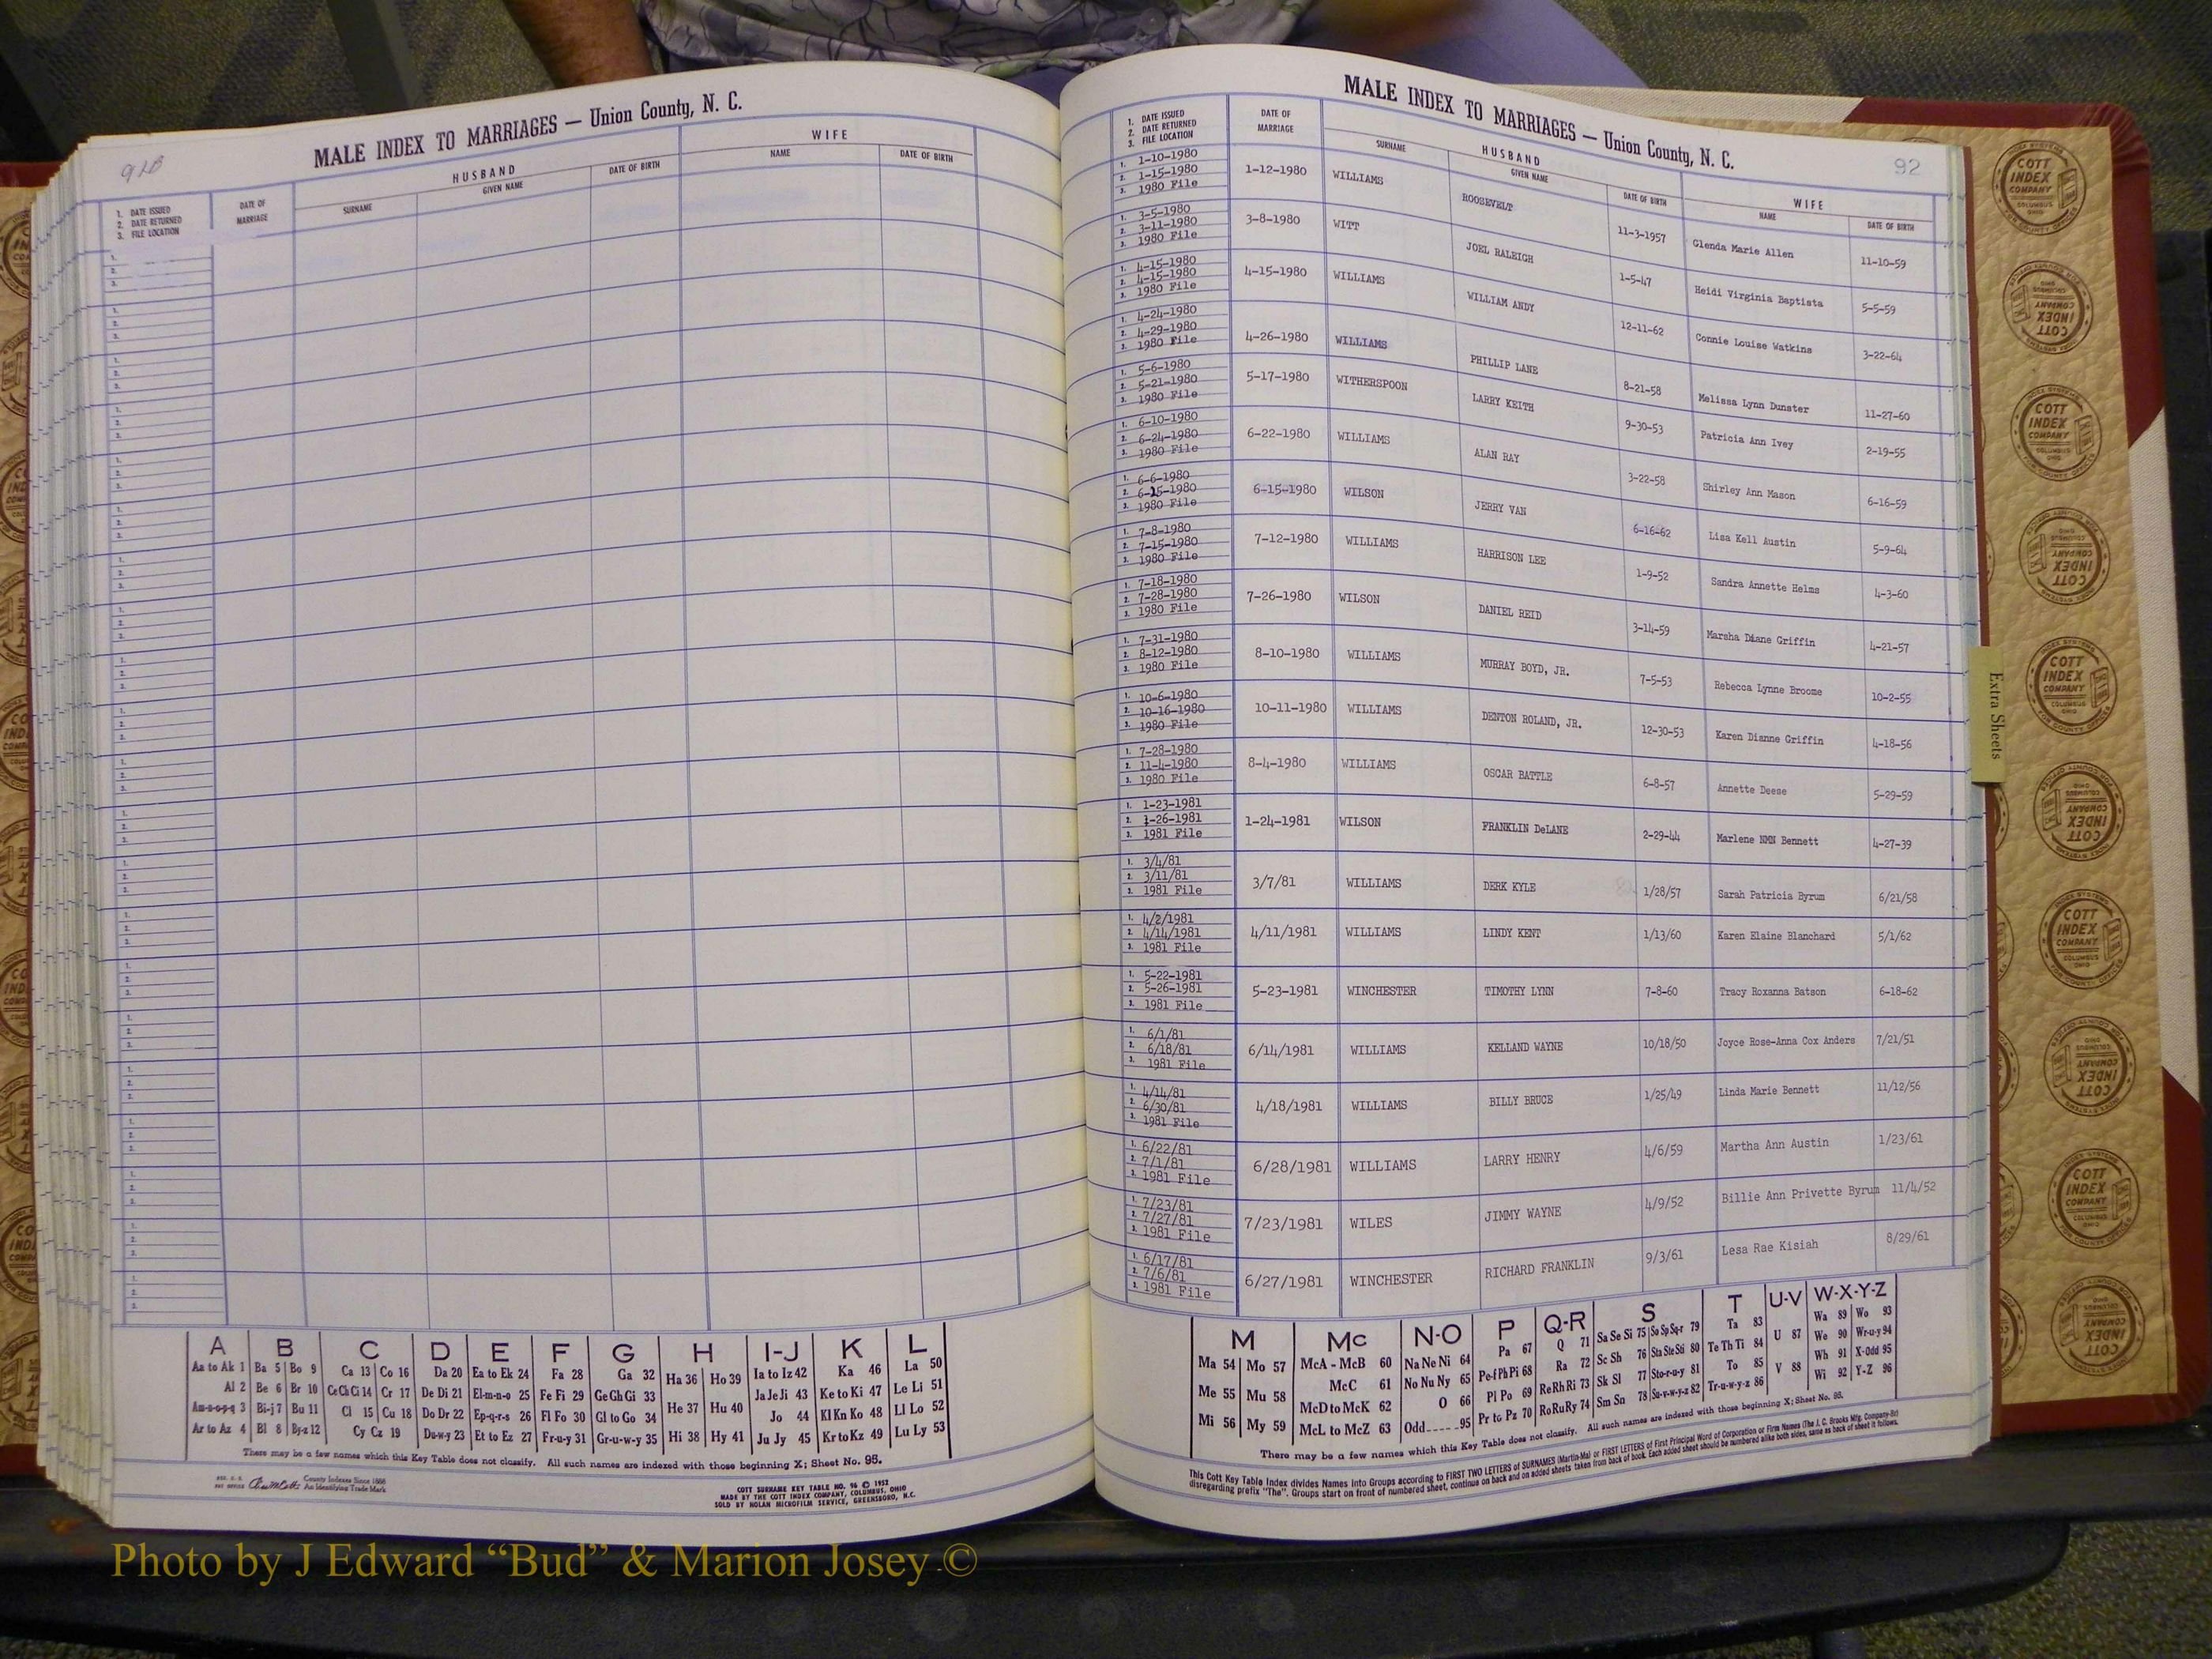 91B
MALE INDEX TO MARRIAGES — Union County, N. C.
HUSBAND WIFE
1. DATE ISSUED
2. DATE RETURNED
3. FILE LOCATION
DATE OF MARRIAGE SURNAME GIVEN NAME DATE OF BIRTH NAME DATE OF BIRTH
A B C D E F G H I-J K L
Aa to Ak 1 Ba 5 Bo 9 Ca 13 Co 16 Da 20 Ea to Ek 24 Fa 28 Ga 32 Ha 36 Ho 39 Ia to Iz 42 Ka 46 La 50
Al 2 Be 6 Br 10 Ce Ch Ci 14 Cr 17 De Di 21 El-m-n-o 25 Fe Fi 29 Ge Gh Gi 33 He 37 Hu 40 Ja Je Ji 43 Ke to Ki 47 Le Li 51
Am-n-o-p-q 3 Bi-j 7 Bu 11 Cl 15 Cu 18 Do Dr 22 Ep-q-r-s 26 Fl Fo 30 Gl to Go 34 Jo 44 Kl Kn Ko 48 Ll Lo 52
Ar to Az 4 Bl 8 By-z 12 Cy Cz 19 Du-w-y 23 Et to Ez 27 Fr-u-y 31 Gr-u-w-y 35 Hi 38 Hy 41 Ju Jy 45 Kr to Kz 49 Lu Ly 53
There may be a few names which this Key Table does not classify. All such names are indexed with those beginning X; Sheet No. 95.
County Indexes Since 1888
An Identifying Trade Mark
COTT SURNAME KEY TABLE NO. 96 © 1952
MADE BY THE COTT INDEX COMPANY, COLUMBUS, OHIO
SOLD BY NOLAN MICROFILM SERVICE, GREENSBORO, N.C.
MALE INDEX TO MARRIAGES — Union County, N. C.
92
1. DATE ISSUED
2. DATE RETURNED
3. FILE LOCATION
DATE OF MARRIAGE
HUSBAND WIFE
SURNAME GIVEN NAME DATE OF BIRTH NAME DATE OF BIRTH
1. 1-10-1980
2. 1-15-1980
3. 1980 File
1-12-1980 WILLIAMS ROOSEVELT 11-3-1957 Glenda Marie Allen 11-10-59
1. 3-5-1980
2. 3-11-1980
3. 1980 File
3-8-1980 WITT JOEL RALEIGH 1-5-47 Heidi Virginia Baptista 5-5-59
1. 4-15-1980
2. 4-15-1980
3. 1980 File
4-15-1980 WILLIAMS WILLIAM ANDY 12-11-62 Connie Louise Watkins 3-22-64
1. 4-24-1980
2. 4-29-1980
3. 1980 File
4-26-1980 WILLIAMS PHILLIP LANE 8-21-58 Melissa Lynn Dunster 11-27-60
1. 5-6-1980
2. 5-21-1980
3. 1980 File
5-17-1980 WITHERSPOON LARRY KEITH 9-30-53 Patricia Ann Ivey 2-19-55
1. 6-10-1980
2. 6-24-1980
3. 1980 File
6-22-1980 WILLIAMS ALAN RAY 3-22-58 Shirley Ann Mason 6-16-59
1. 6-6-1980
2. 6-25-1980
3. 1980 File
6-15-1980 WILSON JERRY VAN 6-16-62 Lisa Kell Austin 5-9-64
1. 7-8-1980
2. 7-15-1980
3. 1980 File
7-12-1980 WILLIAMS HARRISON LEE 1-9-52 Sandra Annette Helms 4-3-60
1. 7-18-1980
2. 7-28-1980
3. 1980 File
7-26-1980 WILSON DANIEL REID 3-14-59 Marsha Diane Griffin 4-21-57
1. 7-31-1980
2. 8-12-1980
3. 1980 File
8-10-1980 WILLIAMS MURRAY BOYD, JR. 7-5-53 Rebecca Lynne Broome 10-2-55
1. 10-6-1980
2. 10-16-1980
3. 1980 File
10-11-1980 WILLIAMS DENTON ROLAND, JR. 12-30-53 Karen Dianne Griffin 4-18-56
1. 7-28-1980
2. 11-4-1980
3. 1980 File
8-4-1980 WILLIAMS OSCAR BATTLE 6-8-57 Annette Deese 5-29-59
1. 1-23-1981
2. 1-26-1981
3. 1981 File
1-24-1981 WILSON FRANKLIN DeLANE 2-29-44 Marlene NMN Bennett 4-27-39
1. 3/4/81
2. 3/11/81
3. 1981 File
3/7/81 WILLIAMS DERK KYLE 1/28/57 Sarah Patricia Byrum 6/21/58
1. 4/2/1981
2. 4/14/1981
3. 1981 File
4/11/1981 WILLIAMS LINDY KENT 1/13/60 Karen Elaine Blanchard 5/1/62
1. 5-22-1981
2. 5-26-1981
3. 1981 File
5-23-1981 WINCHESTER TIMOTHY LYNN 7-8-60 Tracy Roxanna Batson 6-18-62
1. 6/1/81
2. 6/18/81
1981 File
6/14/1981 WILLIAMS KELLAND WAYNE 10/18/50 Joyce Rose-Anna Cox Anders 7/21/51
1. 4/14/81
2. 6/30/81
3. 1981 File
4/18/1981 WILLIAMS BILLY BRUCE 1/25/49 Linda Marie Bennett 11/12/56
1. 6/22/81
2. 7/1/81
3. 1981 File
6/28/1981 WILLIAMS LARRY HENRY 4/6/59 Martha Ann Austin 1/23/61
1. 7/23/81
2. 7/27/81
3. 1981 File
7/23/1981 WILES JIMMY WAYNE 4/9/52 Billie Ann Privette Byrum 11/4/52
1. 6/17/81
2. 7/6/81
3. 1981 File
6/27/1981 WINCHESTER RICHARD FRANKLIN 9/3/61 Lesa Rae Kisiah 8/29/61
M Mc N-O P Q-R S T U-V W-X-Y-Z
Ma 54 Mo 57 McA - McB 60 Na Ne Ni 64 Pa 67 Q 71 Sa Se Si 75 So Sp Sq-r 79 Ta 83 U 87 Wa 89 Wo 93
McC 61 No Nu Ny 65 Pe-f Ph Pi 68 Ra 72 Sc Sh 76 Sta Ste Sti 80 Te Th Ti 84 We 90 Wr-u-y 94
Me 55 Mu 58 McD to McK 62 O 66 Pl Po 69 Re Rh Ri 73 Sk Sl 77 Sto-r-u-y 81 To 85 V 88 Wh 91 X-Odd 95
Mi 56 My 59 McL to McZ 63 Odd 95 Pr to Pz 70 Ro Ru Ry 74 Sm Sn 78 Su-v-w-y-z 82 Tr-u-w-y-z 86 Wi 92 Y-Z 96
There may be a few names which this Key Table does not classify. All such names are indexed with those beginning X; Sheet No. 95.
This Cott Key Table Index divides Names into Groups according to FIRST TWO LETTERS of SURNAMES (Martin-Ma) or FIRST LETTERS of First Principal Word of Corporation or Firm Names (The J. C. Brooks Mfg. Company-Br)
disregarding prefix "The". Groups start on front of numbered sheet, continue on back and on added sheets taken from back of book. Each added sheet should be numbered alike both sides, same as back of sheet it follows.
Extra Sheets
COTT INDEX COMPANY
COLUMBUS OHIO
Photo by J Edward “Bud” & Marion Josey ©